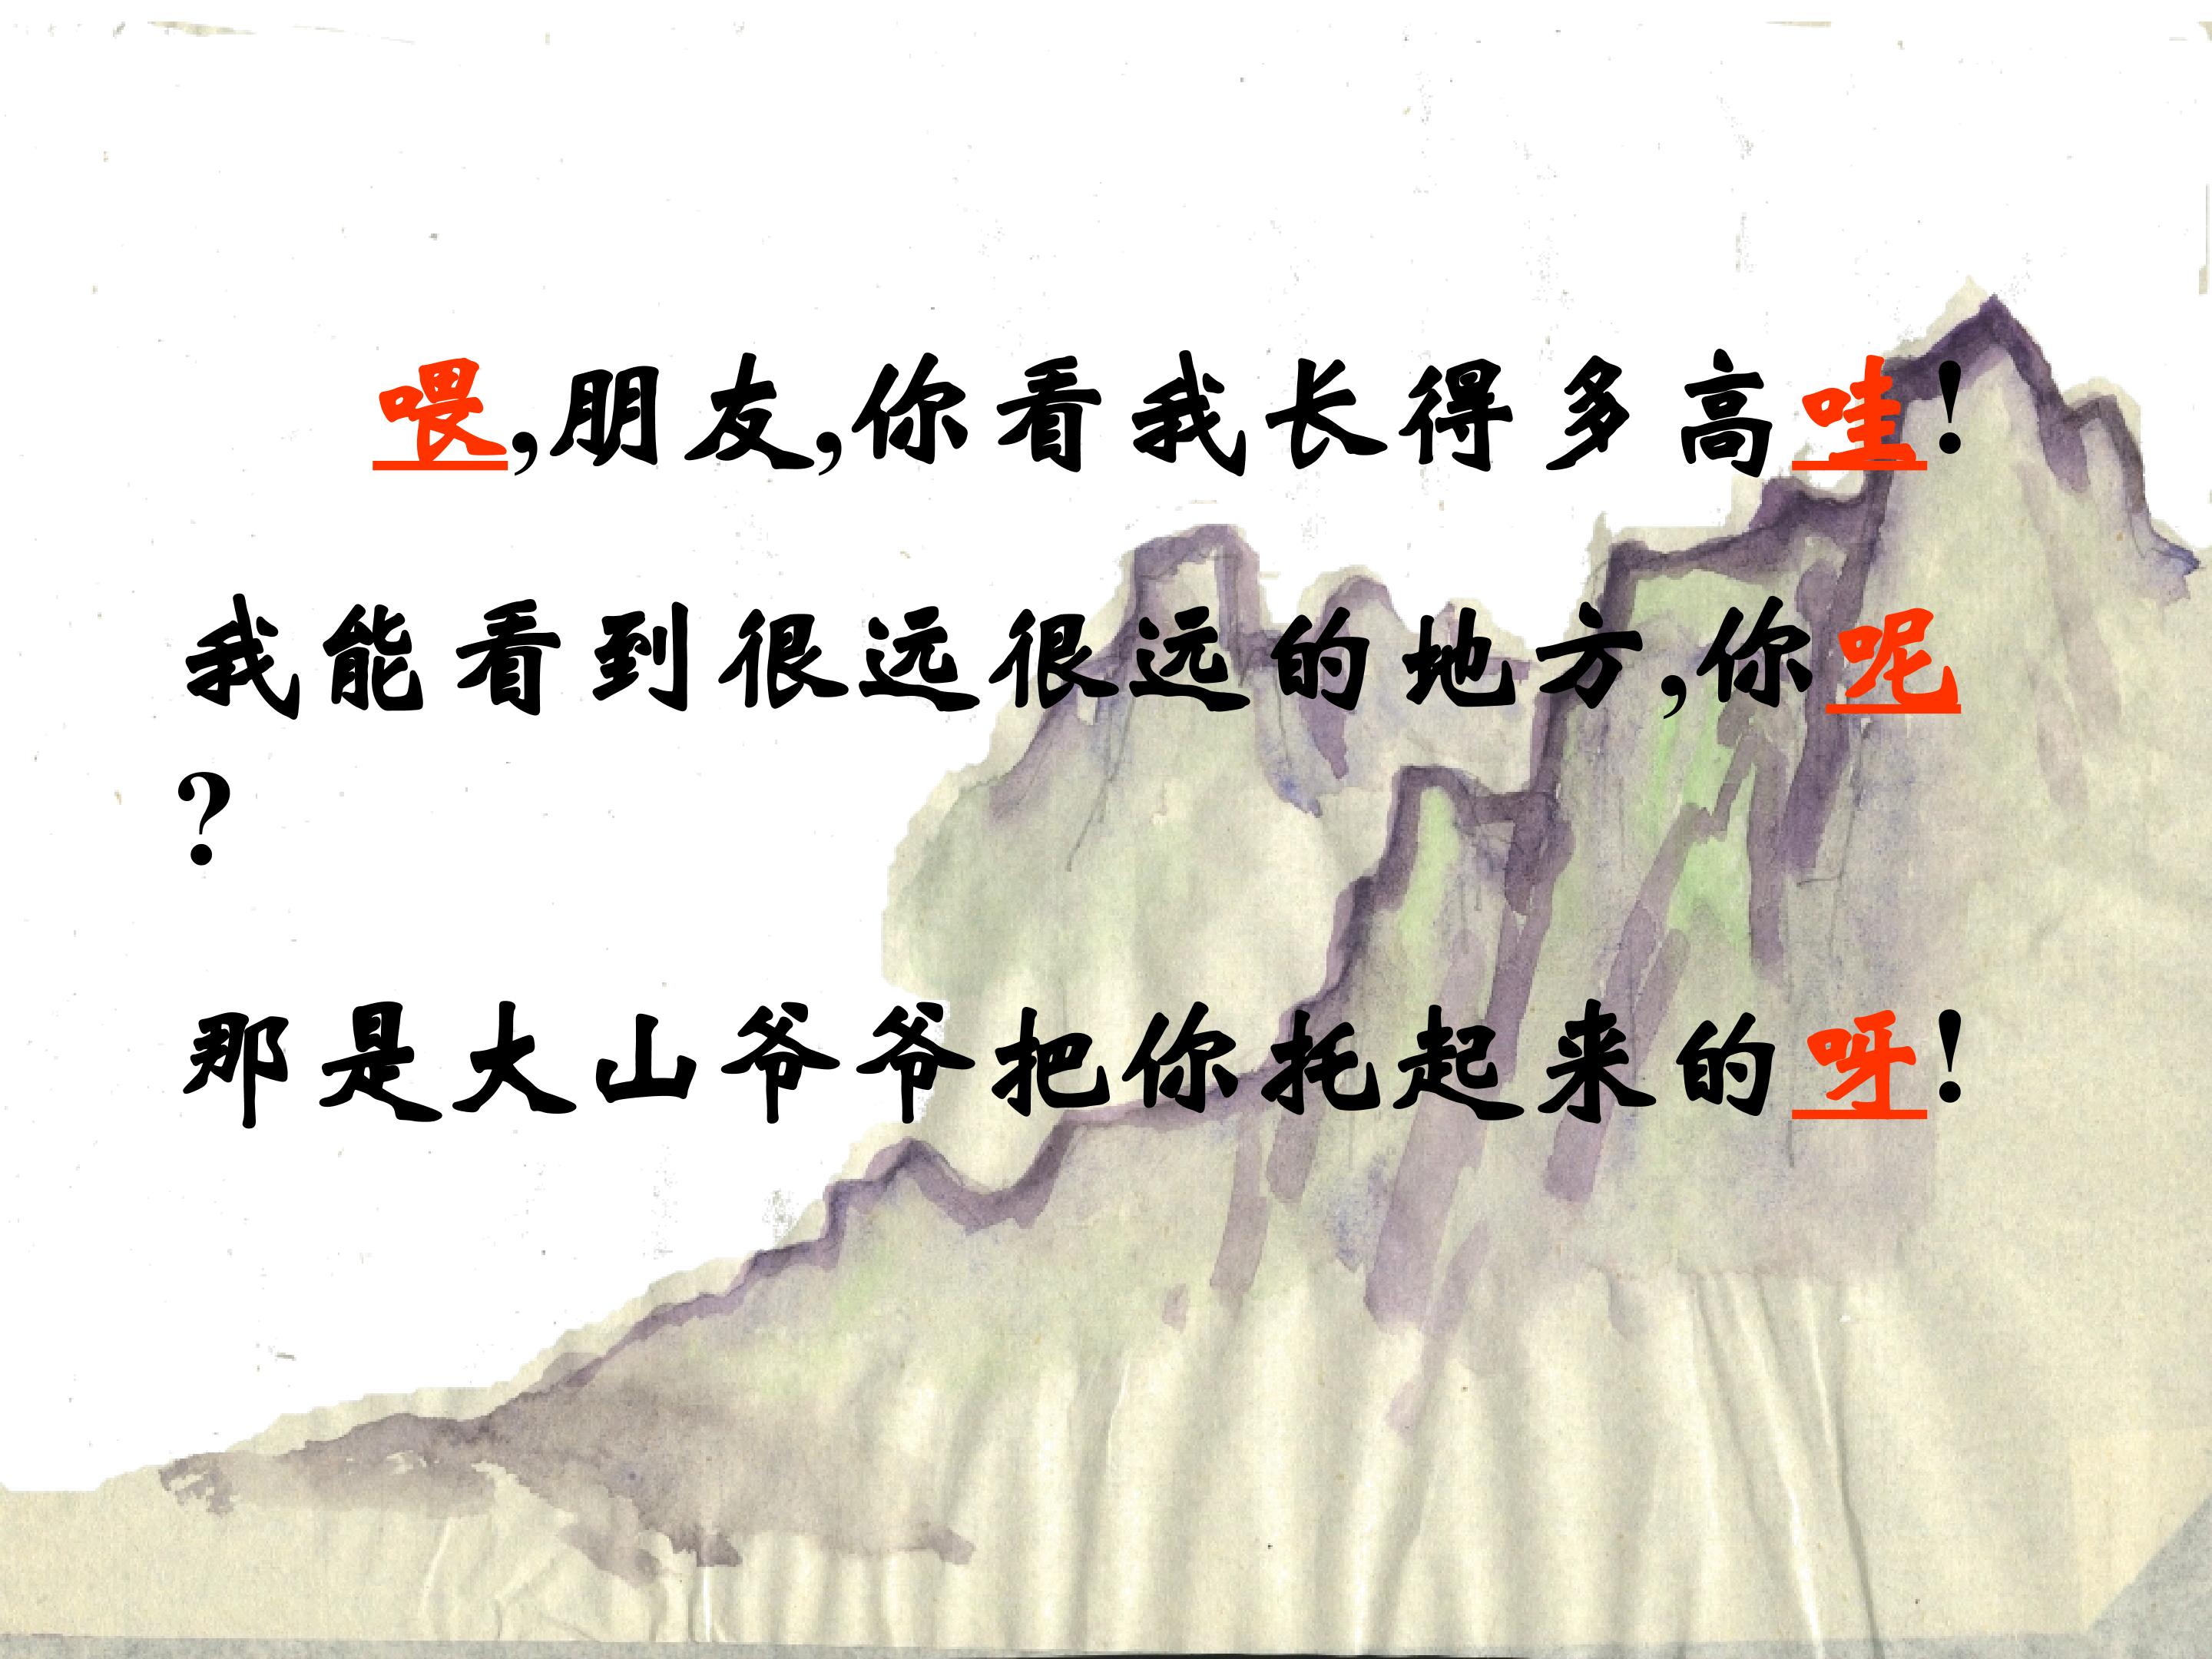 喂,朋友,你看我长得多高哇!
我能看到很远很远的地方,你呢
?
那是大山爷爷把你托起来的呀!